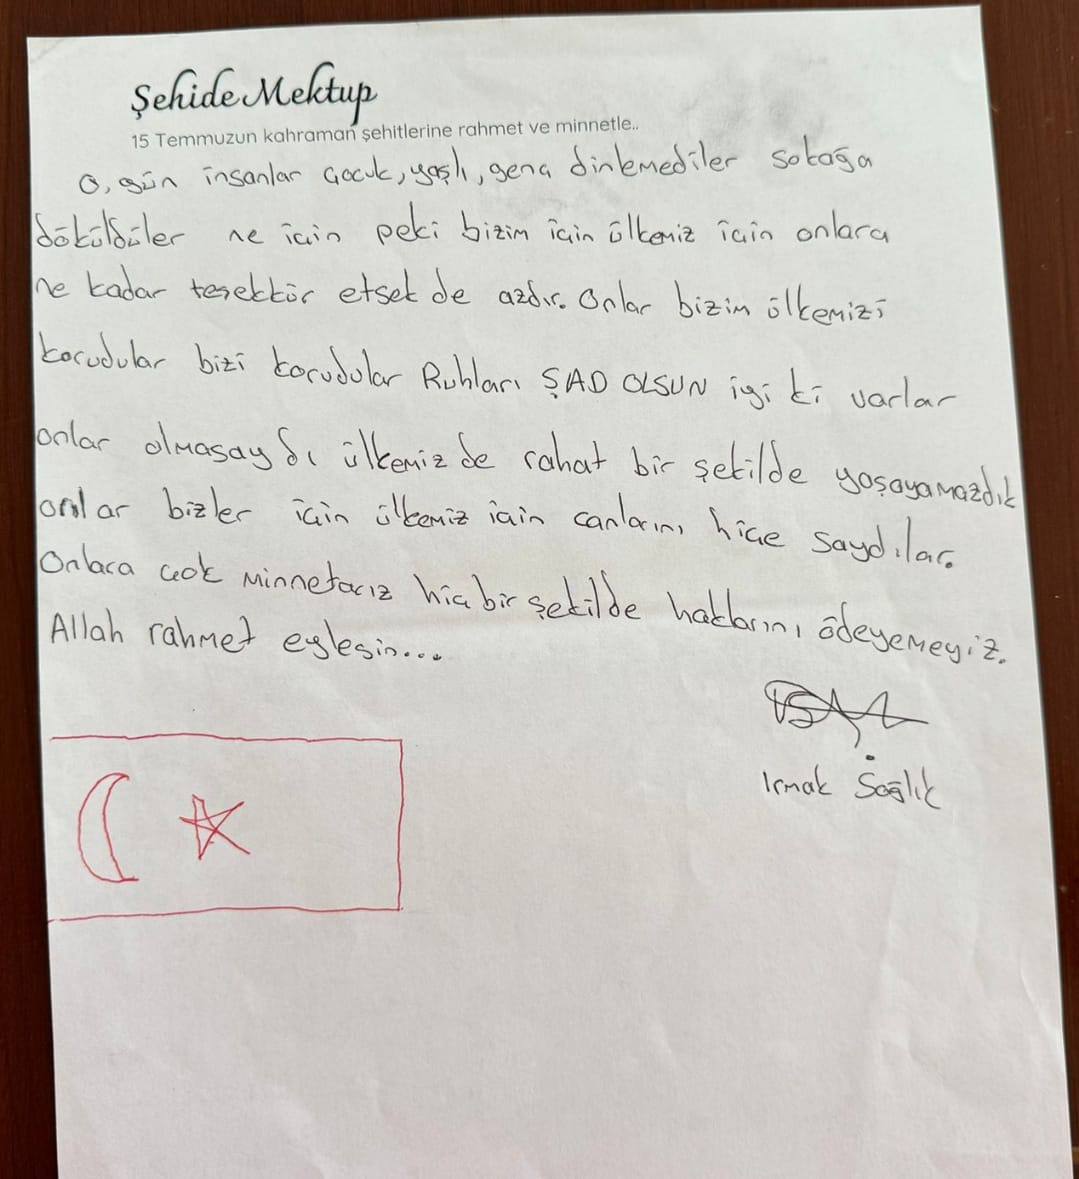 Şehide Mektup
15 Temmuzun kahraman şehitlerine rahmet ve minnetle..
O, gün insanlar çocuk, yaşlı, genç dinlemediler sokağa
döküldüler ne için peki bizim için ülkemiz için onlara
ne kadar teşekkür etsek de azdır. Onlar bizim ülkemizi
korudular bizi korudular Ruhları ŞAD OLSUN iyi ki varlar
onlar olmasaydı ülkemiz de rahat bir şekilde yaşayamazdık
onlar bizler için ülkemiz için canlarını hiçe saydılar.
Onlara çok minnetarız hiç bir şekilde haklarını ödeyemeyiz.
Allah rahmet eylesin...
Irmak Sağlık